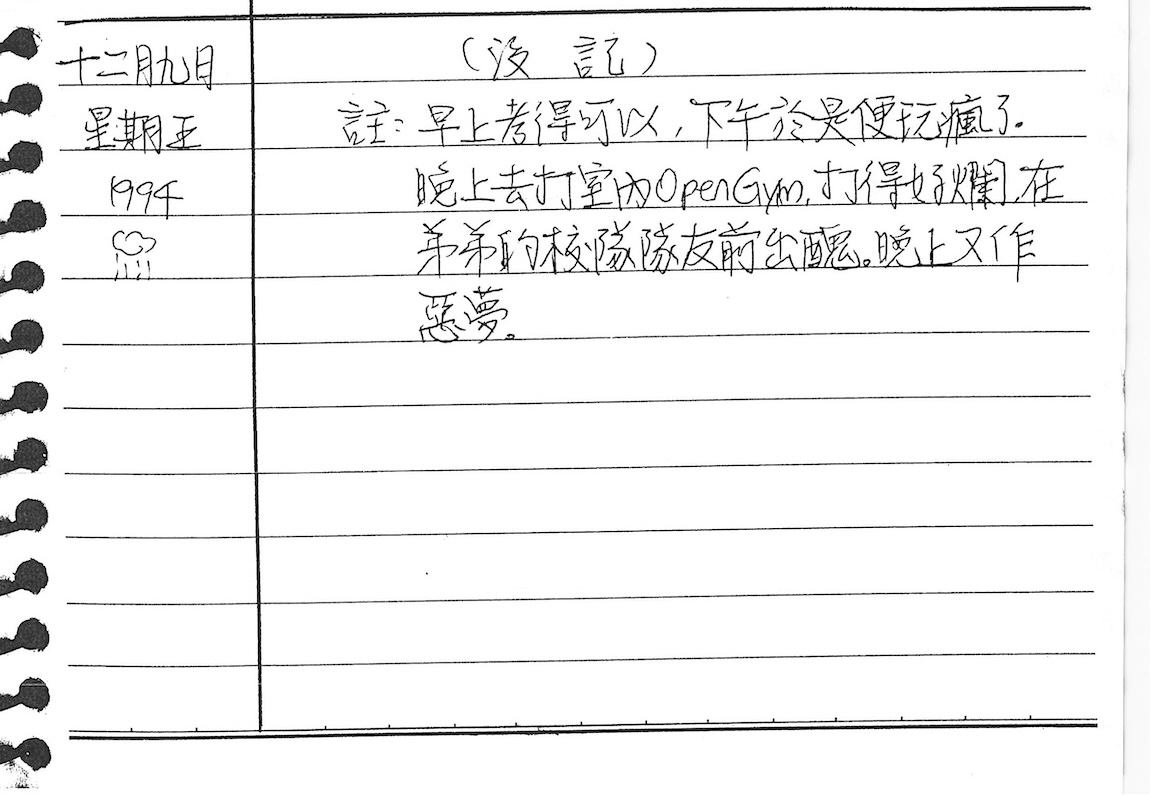 十二月九日
星期五
1994
(沒 記)
註:早上考得可以,下午於是便玩瘋了.
晚上去打室內OpenGym,打得好爛,在
弟弟的校隊隊友前出醜。晚上又作
惡夢。